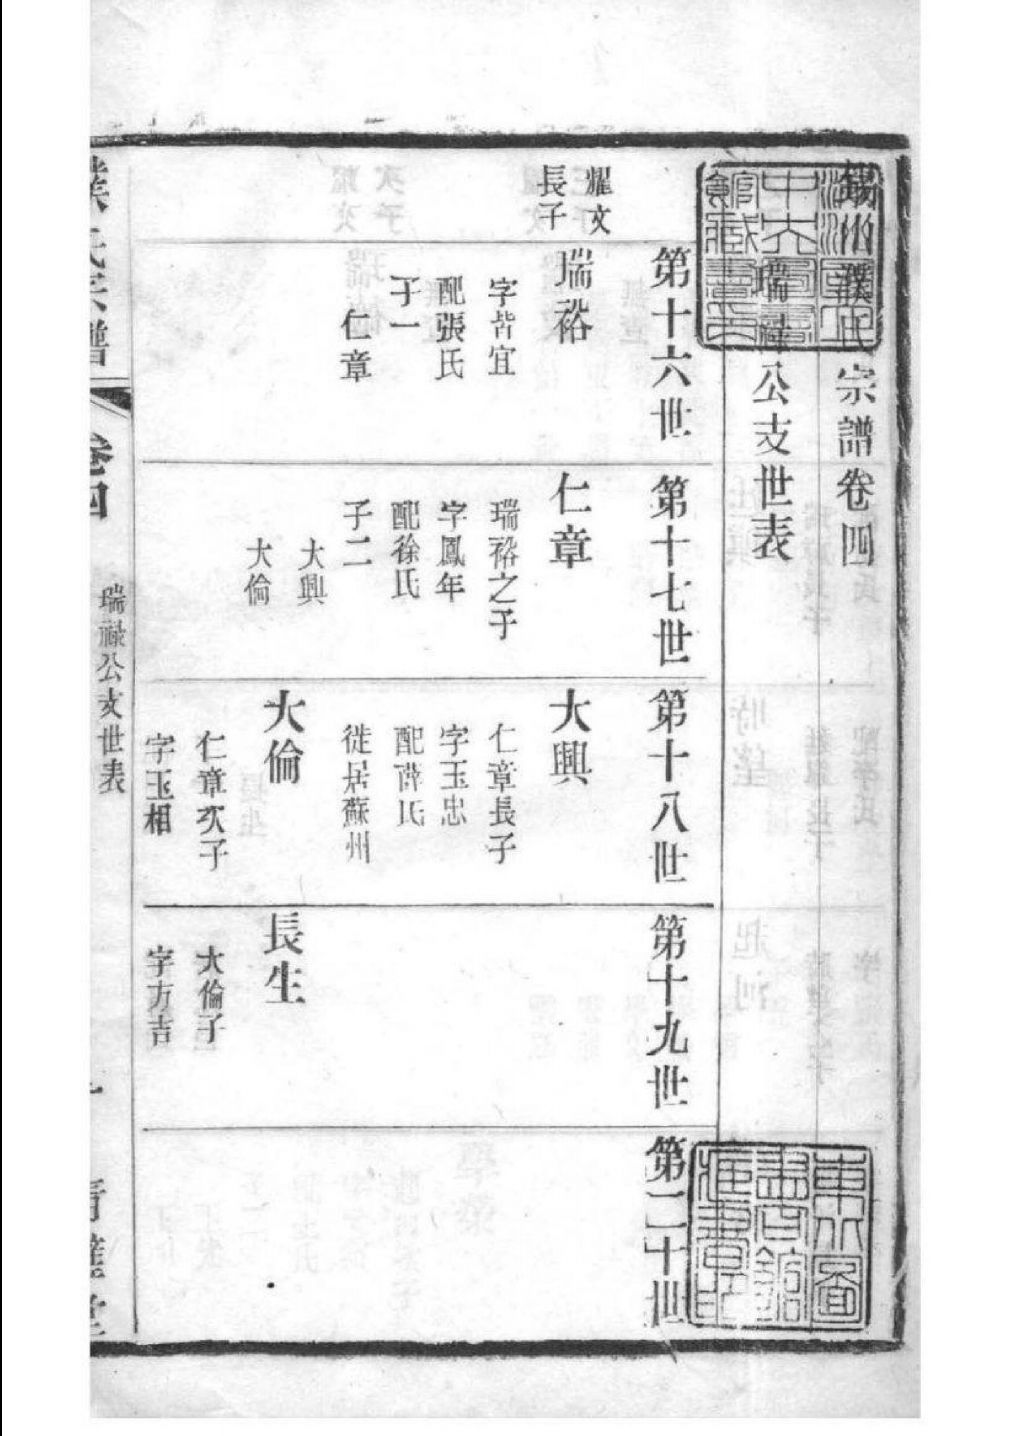 錫山濮氏宗譜卷四
瑞祿公支世表
第十六世
第十七世
第十八世
第十九世
第二十世
耀文
長子
瑞裕
字皆宜
配張氏
子一
仁章
仁章
瑞裕之子
字鳳年
配徐氏
子二
大興
大倫
大興
仁章長子
字玉忠
配薛氏
徙居蘇州
大倫
仁章次子
字玉相
長生
大倫子
字方吉
濮氏宗譜
卷四
瑞祿公支世表